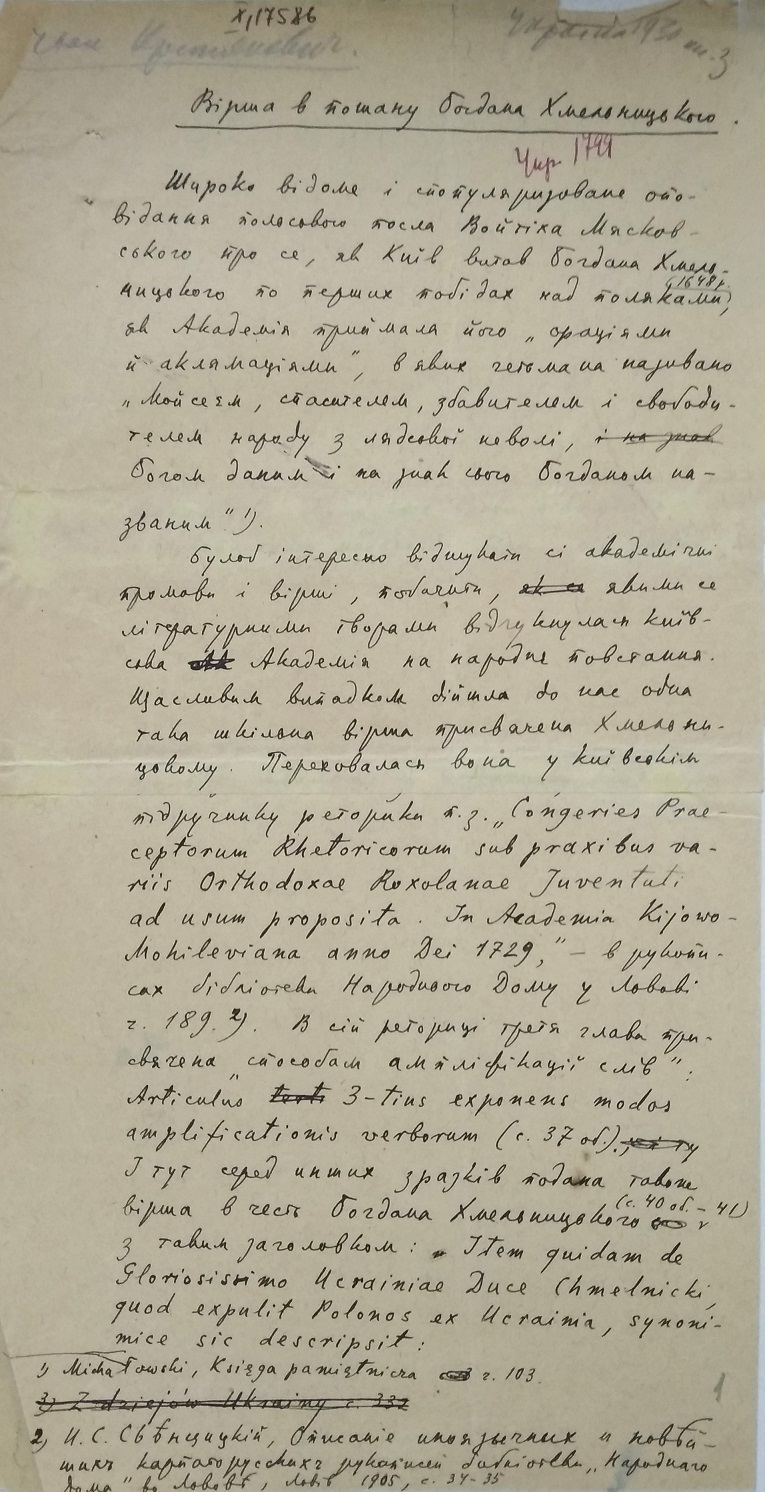 X,17586
Іван Крипякевич.
Україна 193 т. 3
Вірша в пошану Богдана Хмельницького.
Чир. 1799
Широко відоме і спопуляризоване опо-
відання польського посла Войтіха Мясков-
ського про се, як Київ витав Богдана Хмель-
ницького по перших побідах над поляками,
(1648 р.
як Академія приймала його „ораціями
й аклямаціями", в яких гетьмана називано
„Мойсеєм, спасителем, збавителем і свободи-
телем народу з лядської неволі, і на знак
богом даним і на знак сього Богданом на-
званим" ¹).
Булоб інтересно відшукати сі академічні
промови і вірші, побачити, як с якими се
літературними творами відгукнулася Київ-
ська Ак Академія на народне повстання.
Щасливим випадком дійшла до нас одна
така шкільна вірша присвячена Хмельни-
цькому. Переховалась вона у київськім
підручнику реторики п.з. „Congeries Prae-
ceptorum Rhetoricorum sub praxibus va-
riis Orthodoxae Roxolanae Juventuti
ad usum proposita. In Academia Kijowo-
Mohileviana anno Dei 1729," – в рукопи-
сах бібліотеки Народного Дому у Львові
ч. 189. ²). В сій реториці третя глава при-
свячена „способам ампліфікації слів":
Articulus terti 3-tius exponens modos
amplificationis verborum (с. 37 об.).
І тут серед инших зразків подана також
вірша в честь Богдана Хмельницького
(с. 40 об. – 41)
з таким заголовком: „Item quidam de
Gloriosissimo Ucrainiae Duce Chmelnicki,
quod expulit Polonos ex Ucrainia, synoni-
mice sic descripsit:
1) Michałowski, Księga pamiętnicza ч. 103.
3) Z dziejów Ukrainy с. 332
2) И. С. Свѣнцицкій, Описаніе иноязычных и новѣй-
шихъ карпаторусскихъ рукописей библіотеки „Народнаго
Дома" во Львовѣ, Львів 1905, с. 34-35
1